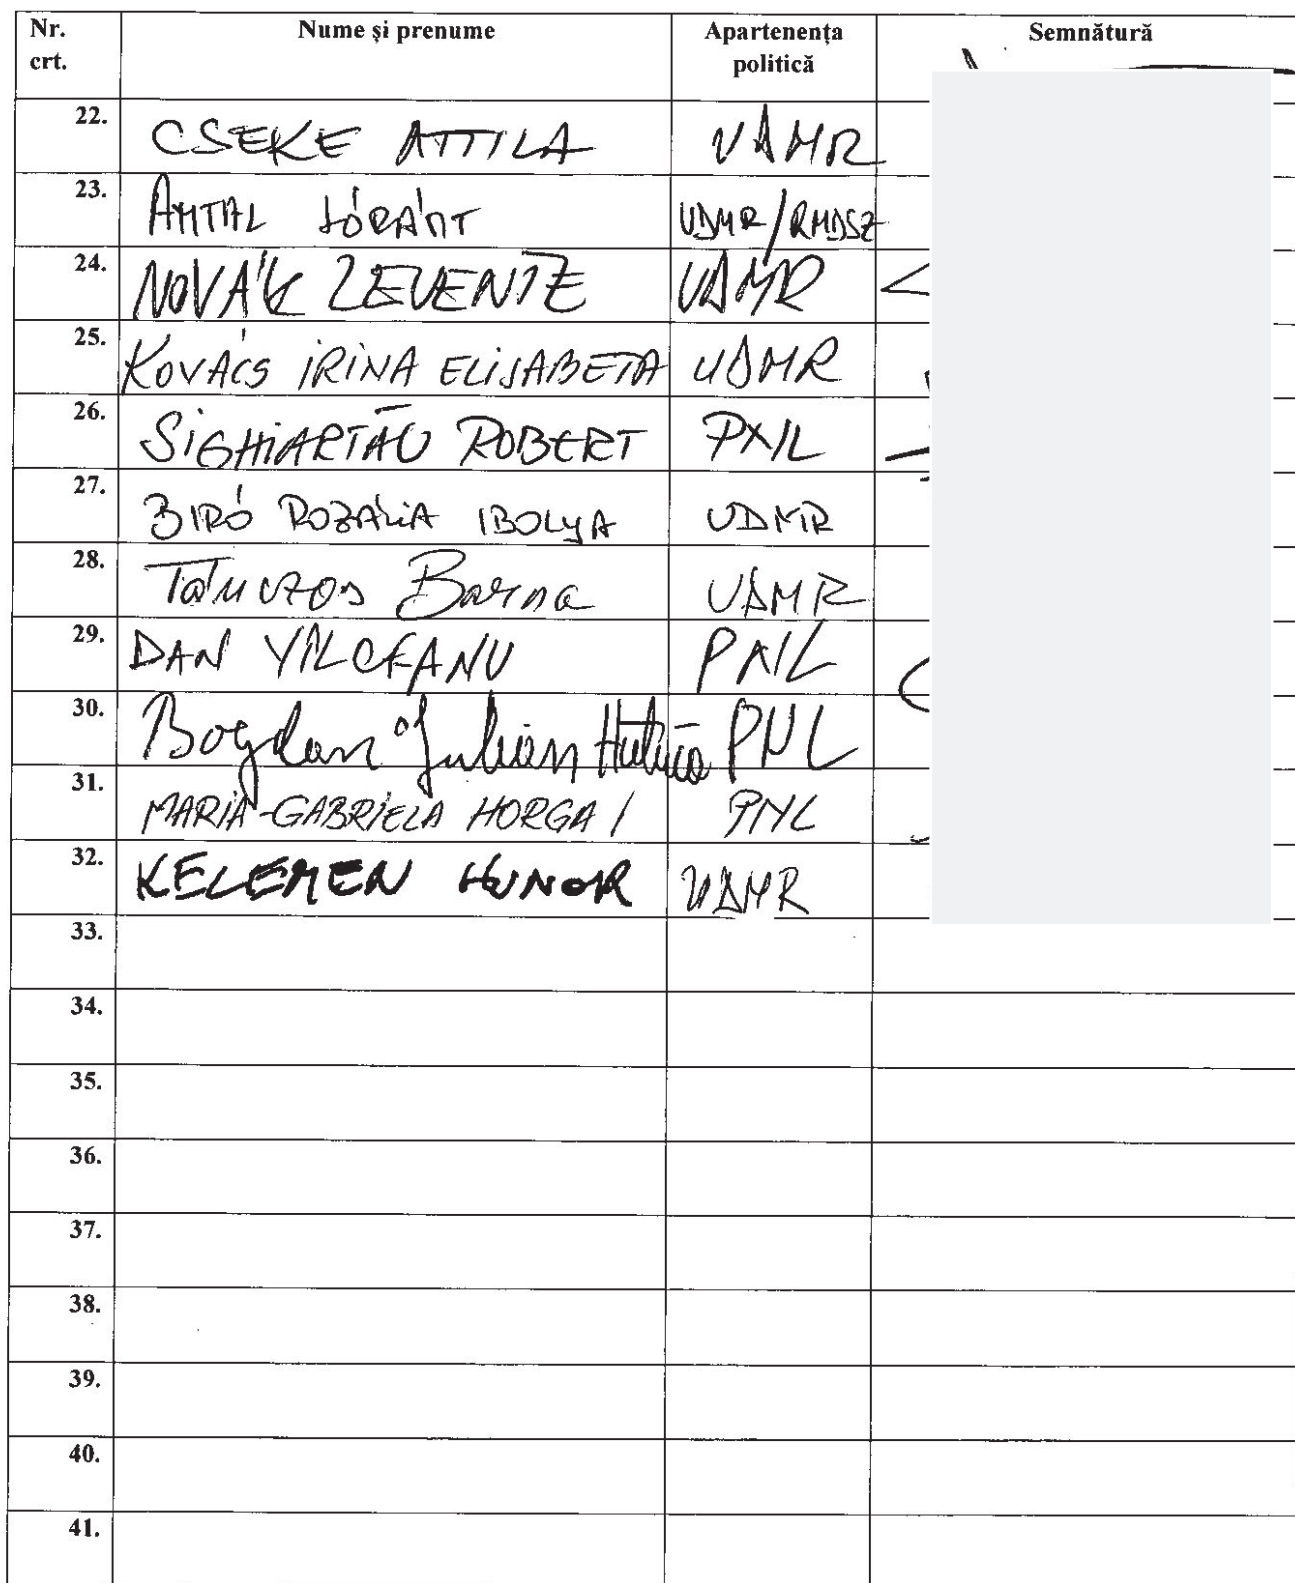 Nr. crt. Nume și prenume Apartenența politică Semnătură
22. CSEKE ATTILA UDMR
23. ANTAL LÓRÁNT UDMR/RMDSZ
24. NOVÁK LEVENTE UDMR
25. KOVÁCS IRINA ELISABETA UDMR
26. SIGHIARTĂU ROBERT PNL
27. BIRÓ ROZÁLIA IBOLYA UDMR
28. Tánczos Barna UDMR
29. DAN VÎLCEANU PNL
30. Bogdan Iulian Huțucă PNL
31. MARIA-GABRIELA HORGA / PNL
32. KELEMEN HUNOR UDMR
33.
34.
35.
36.
37.
38.
39.
40.
41.